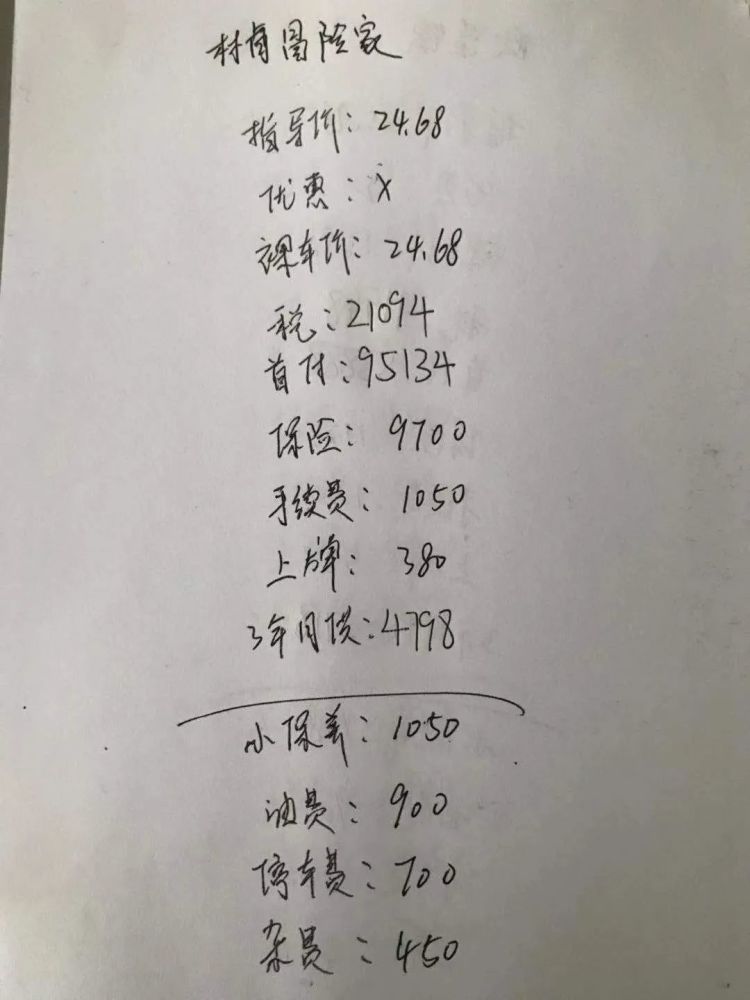 林肯冒险家
指导价：24.68
优惠：x
裸车价：24.68
税：21094
首付：95134
保险：9700
手续费：1050
上牌：380
3年月供：4798
小保养：1050
油费：900
停车费：700
杂费：450